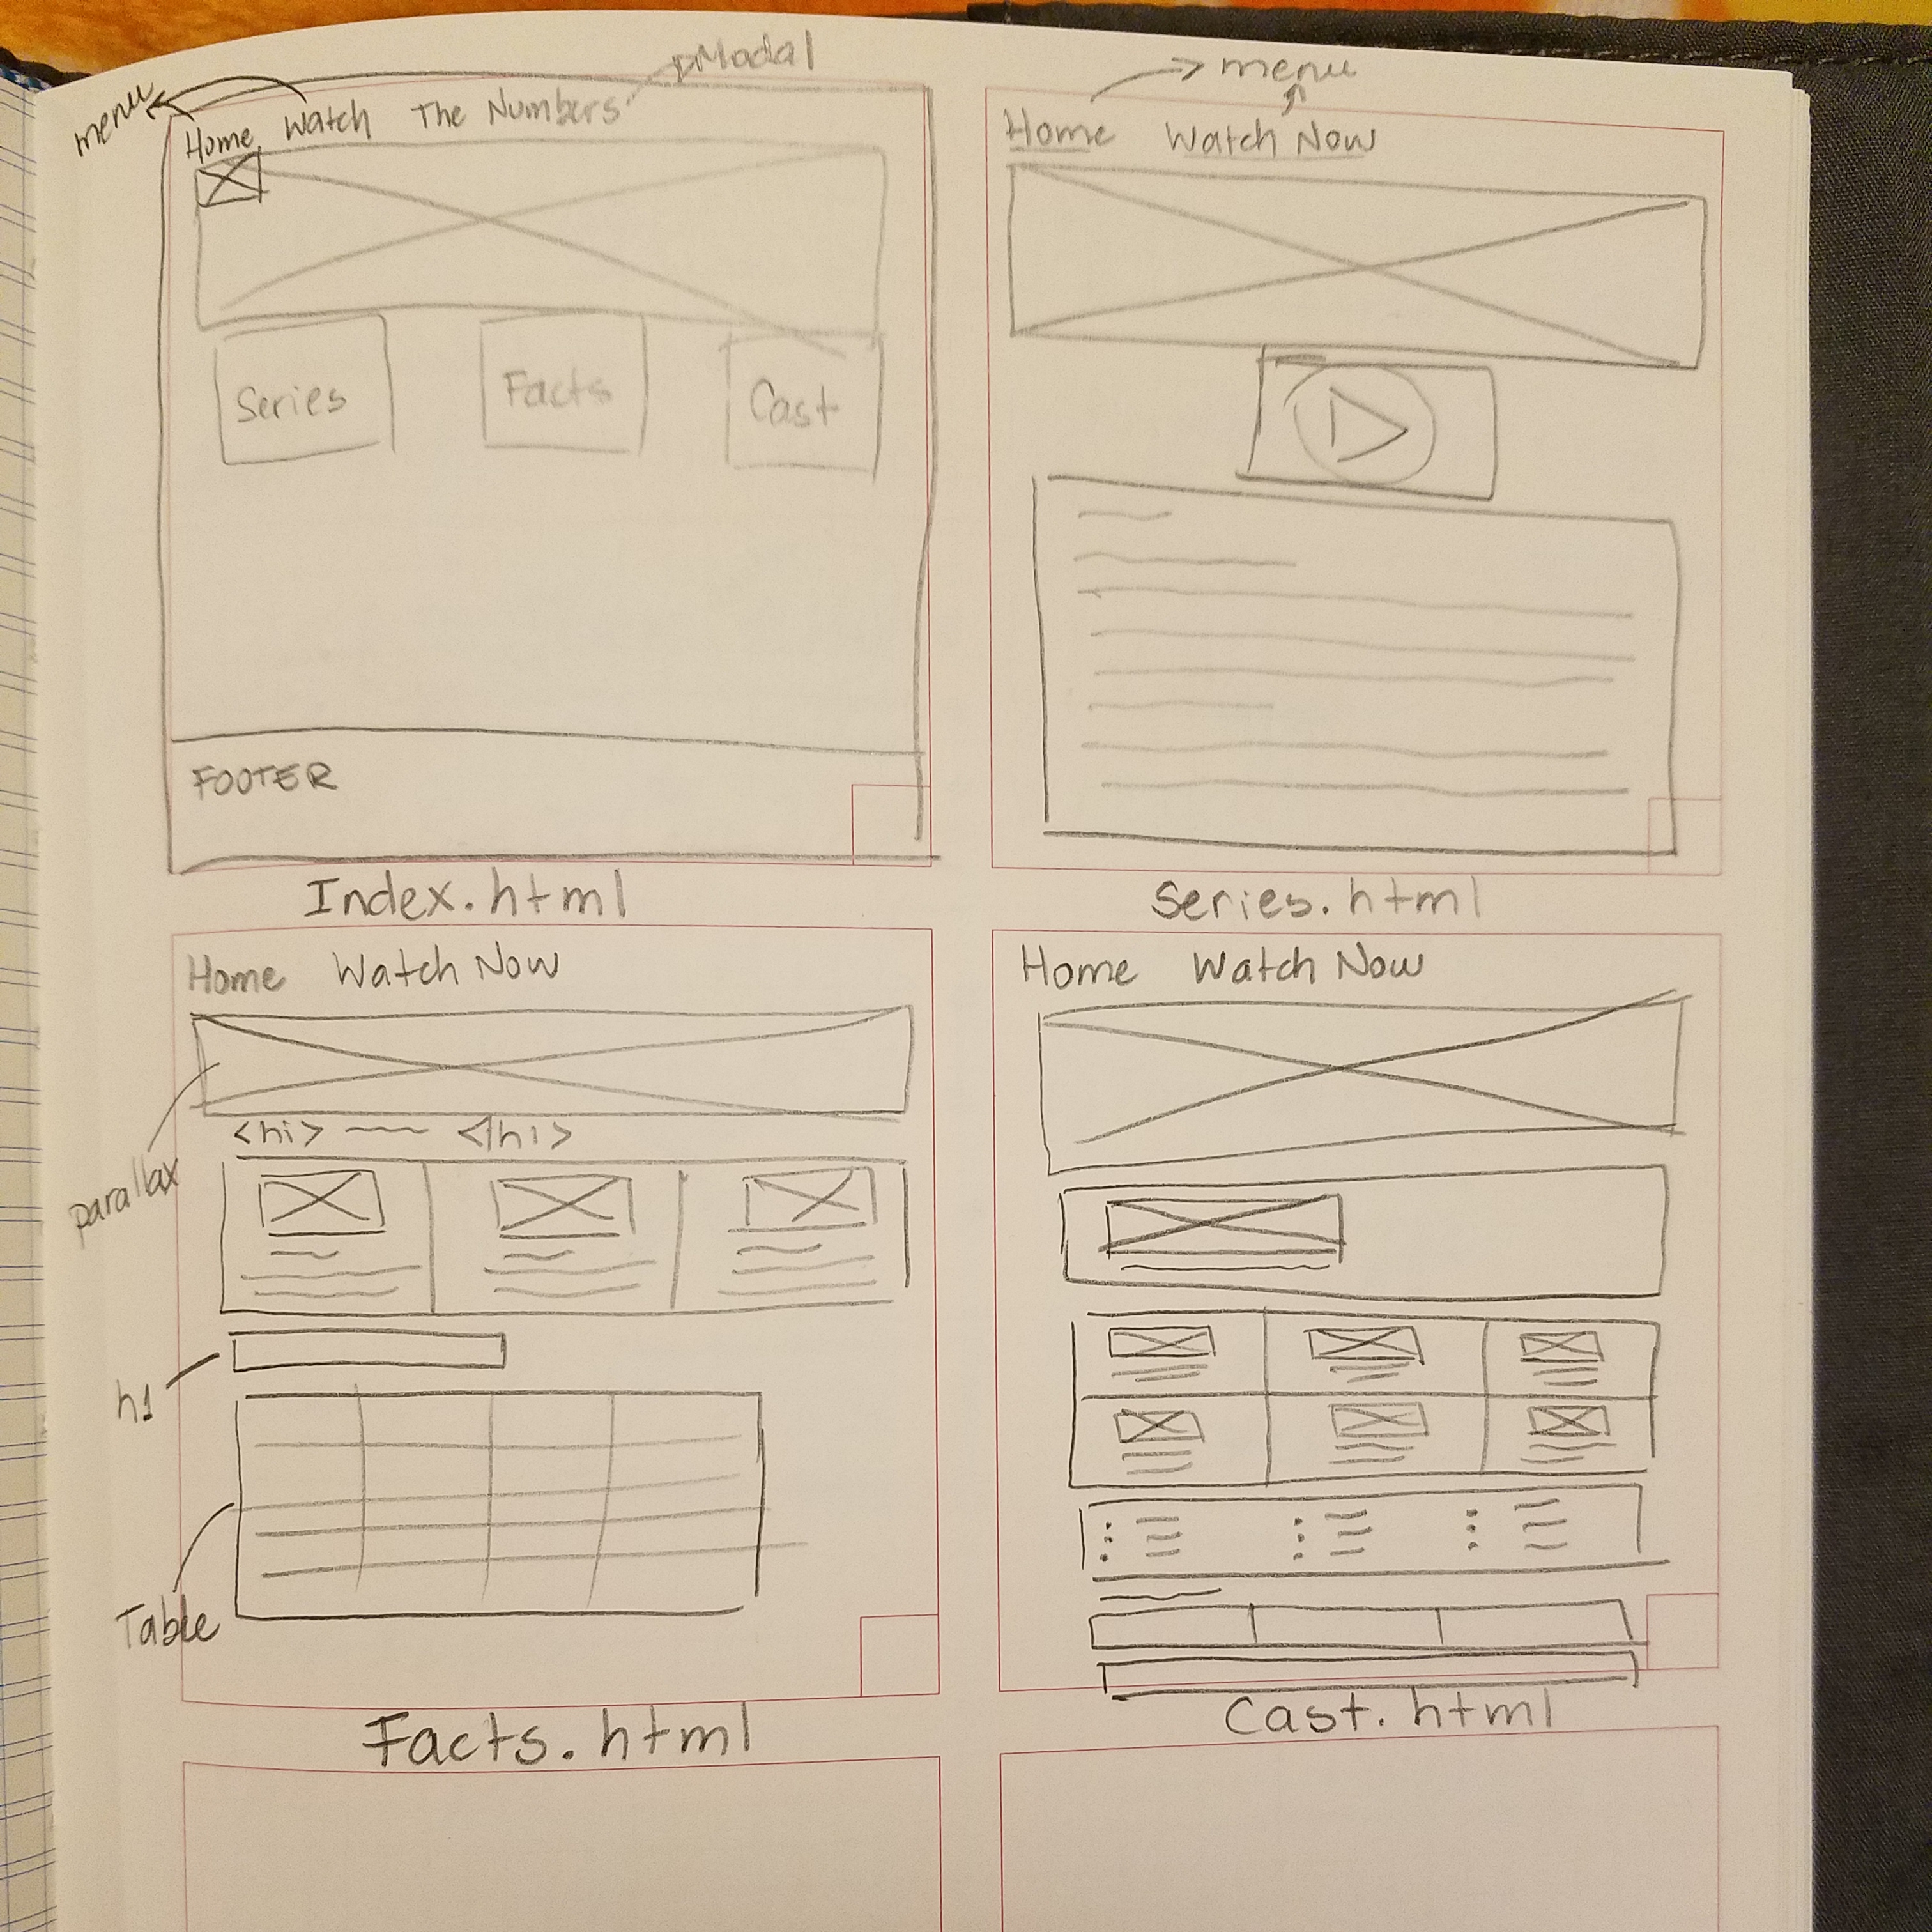 Modal
menu
Home Watch The Numbers
Series Facts Cast
FOOTER
Index.html
menu
Home Watch Now
Series.html
Home Watch Now
parallax
<h1> </h1>
h1
Table
Facts.html
Home Watch Now
Cast.html